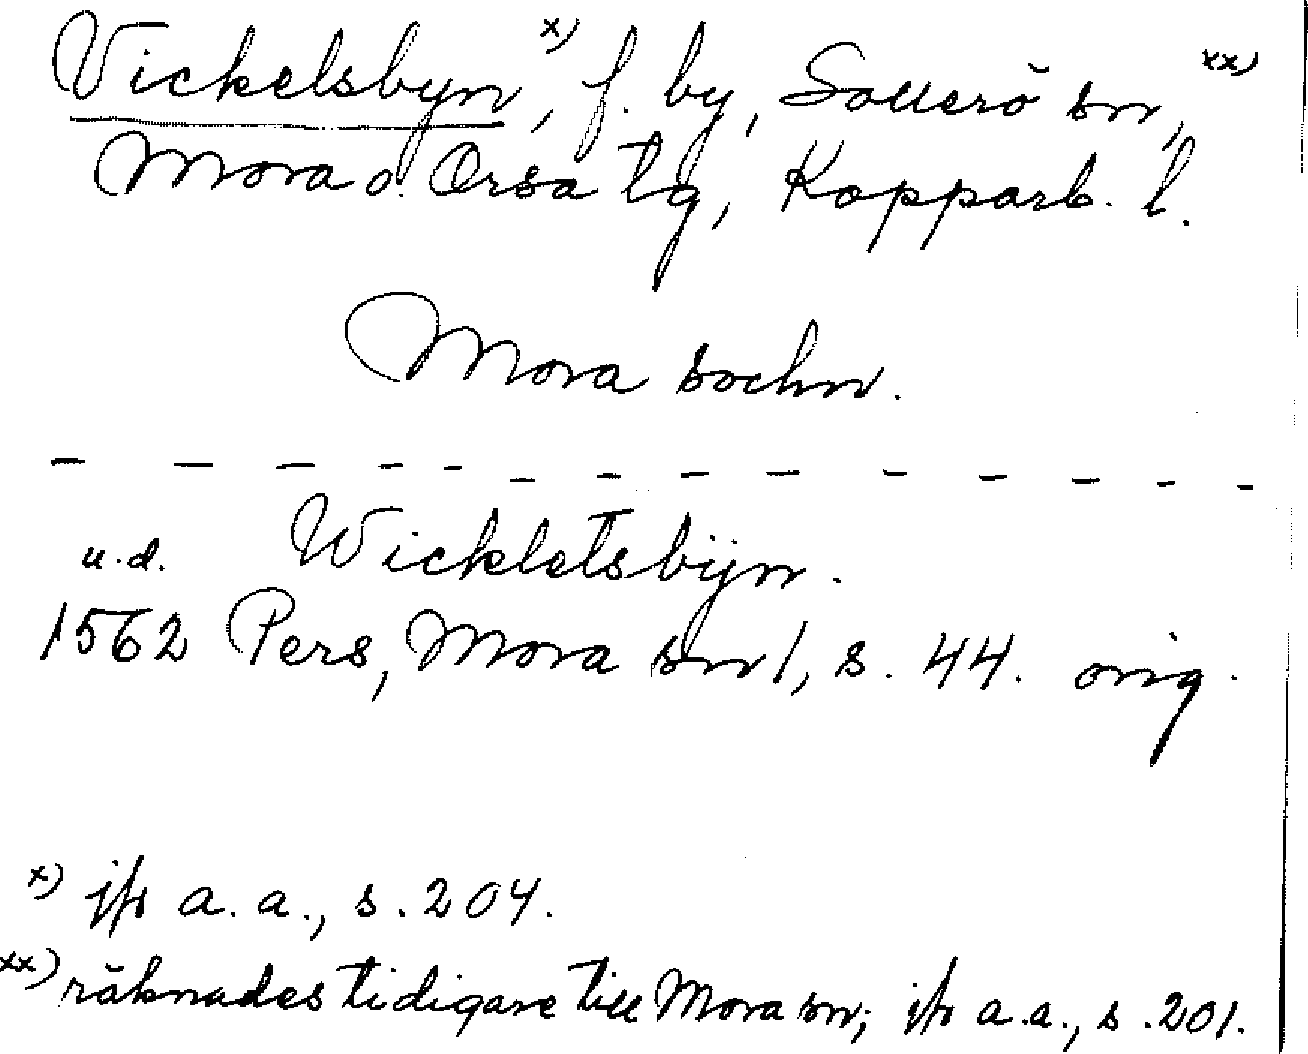 Vickelsbyn x), f. by, Sollerö sn, xx)
Mora o. Orsa tg, Kopparb. l.
Mora sochn.
Wickletsbÿn.
u.d.
1562 Pers, Mora sn 1, s. 44. orig.
x) jfr a.a., s. 204.
xx) räknades tidigare till Mora sn; jfr a.a., s. 201.